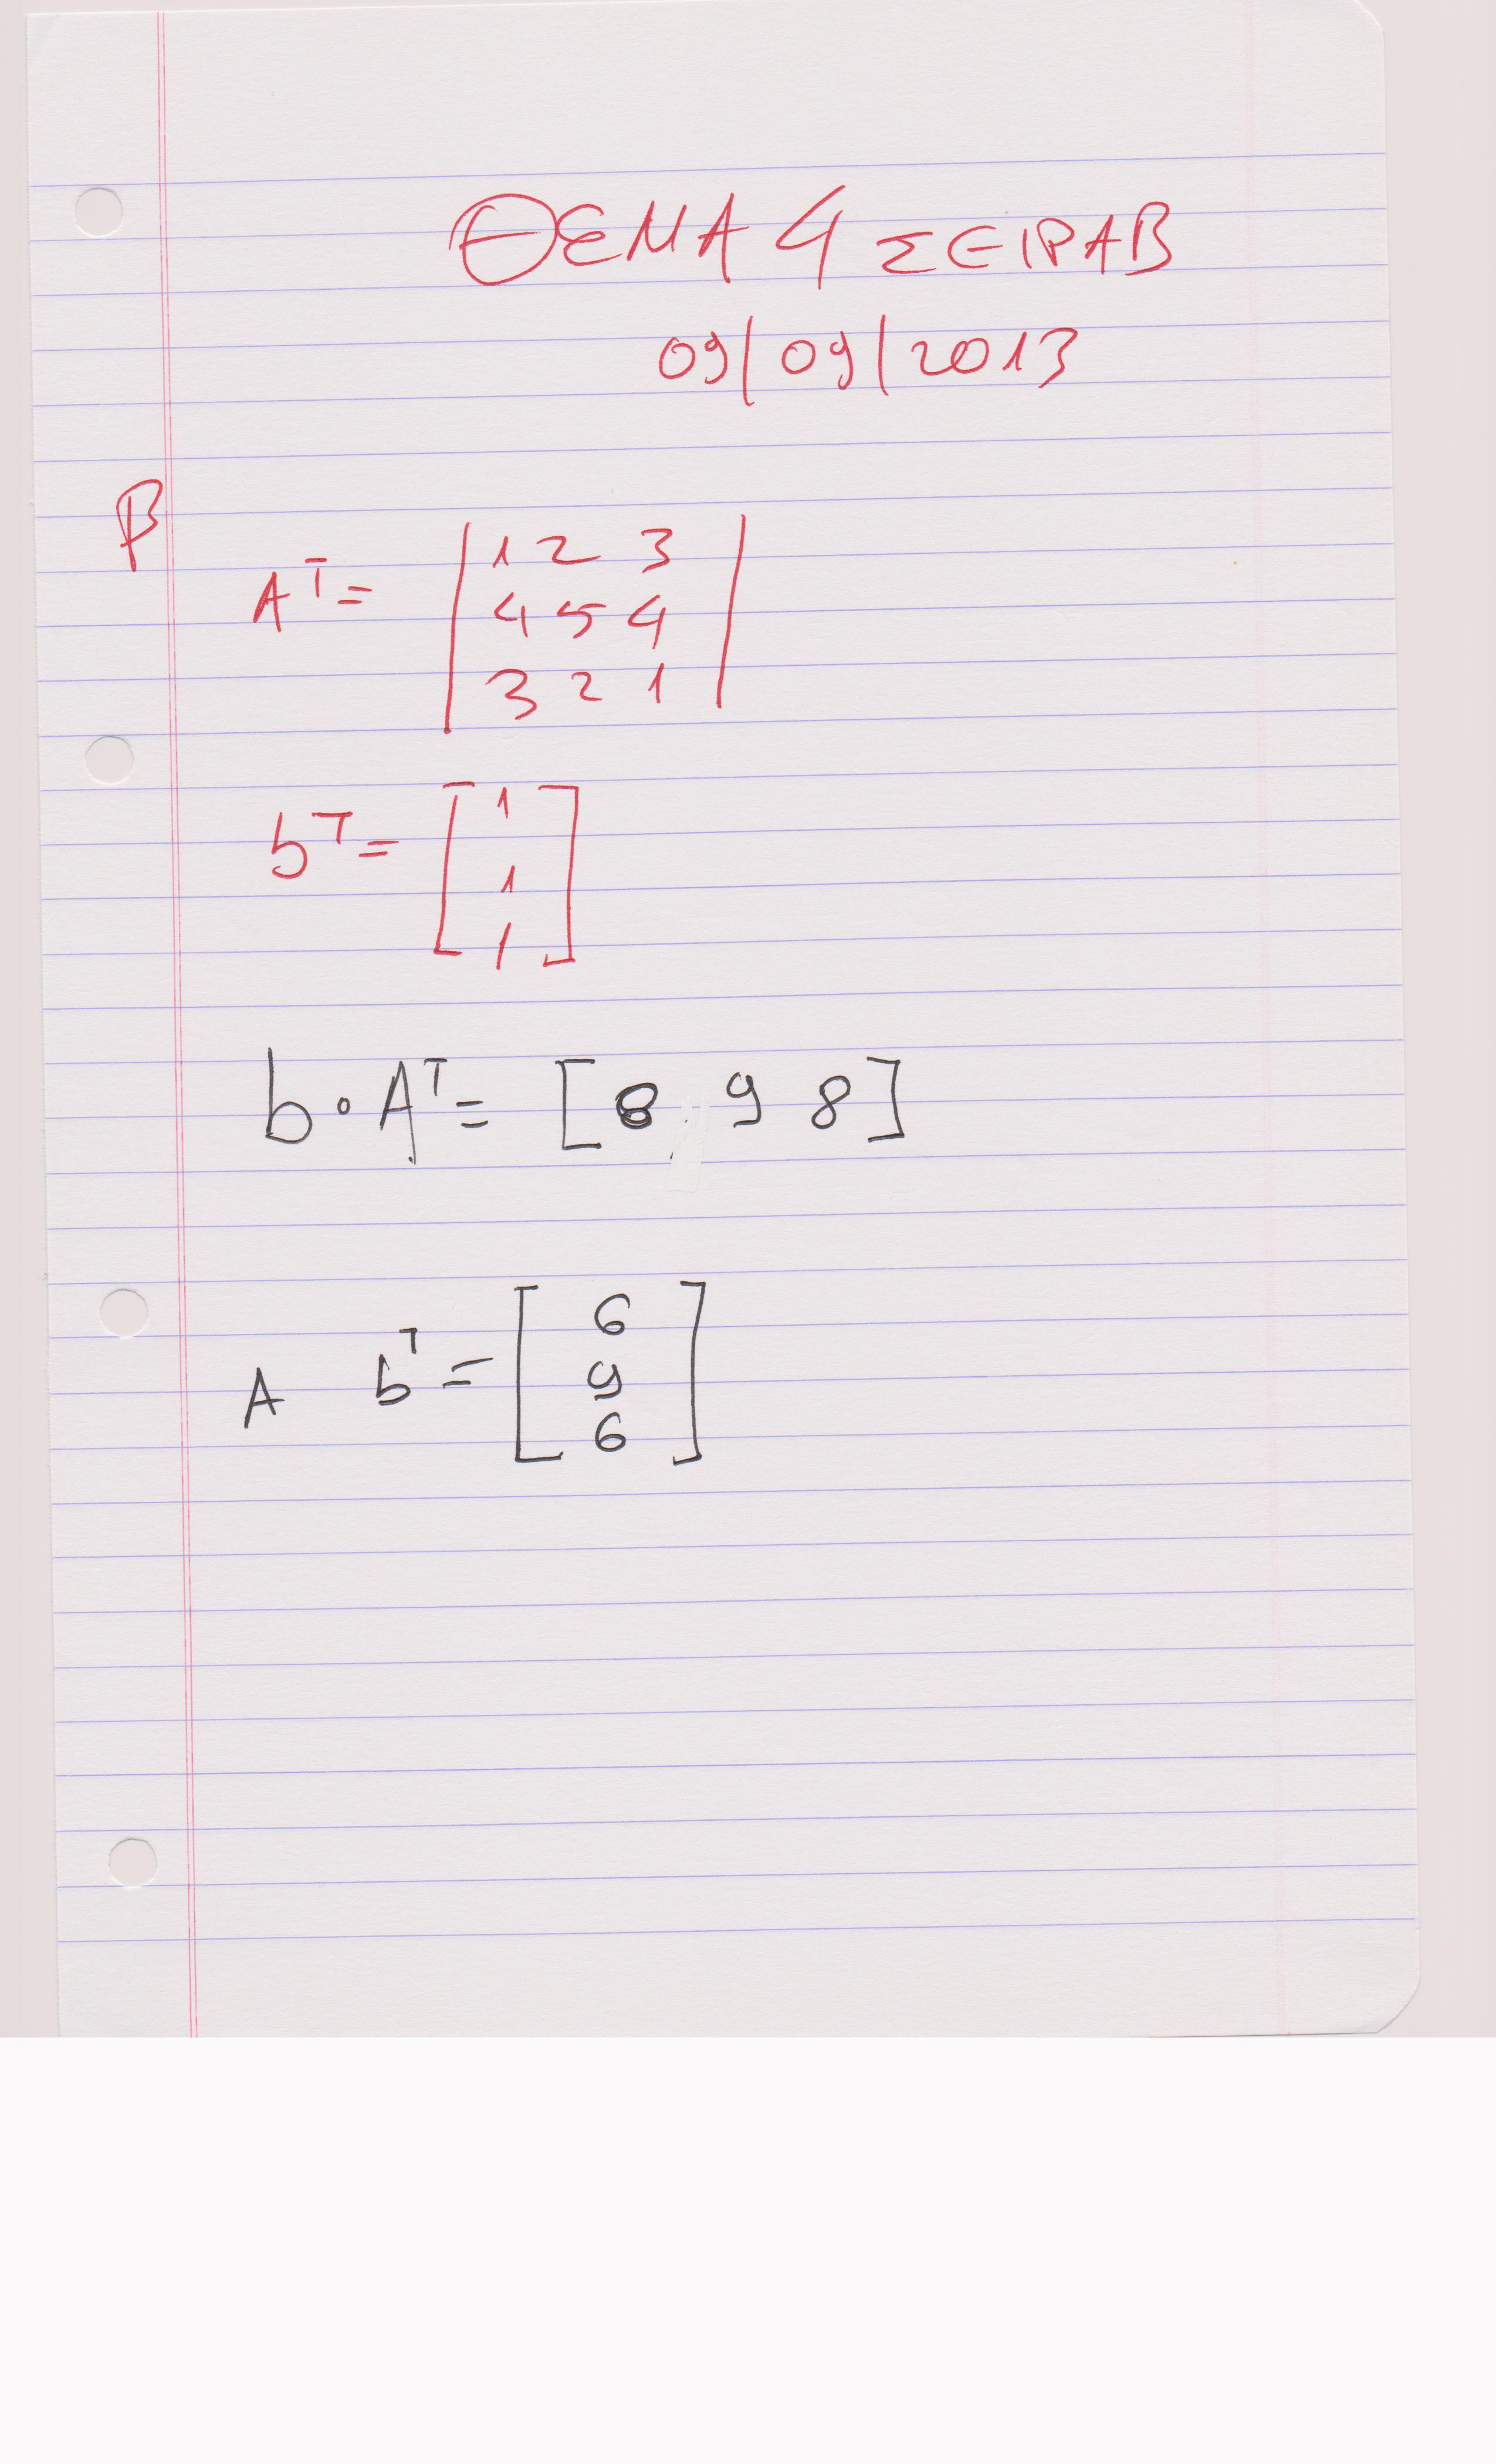 ΘΕΜΑ 4 ΣΕΙΡΑ Β
09/09/2013
β
A^T = | 1 2 3 |
| 4 5 4 |
| 3 2 1 |
b^T = [ 1
1
1 ]
b · A^T = [ 8 9 8 ]
A b^T = [ 6
9
6 ]